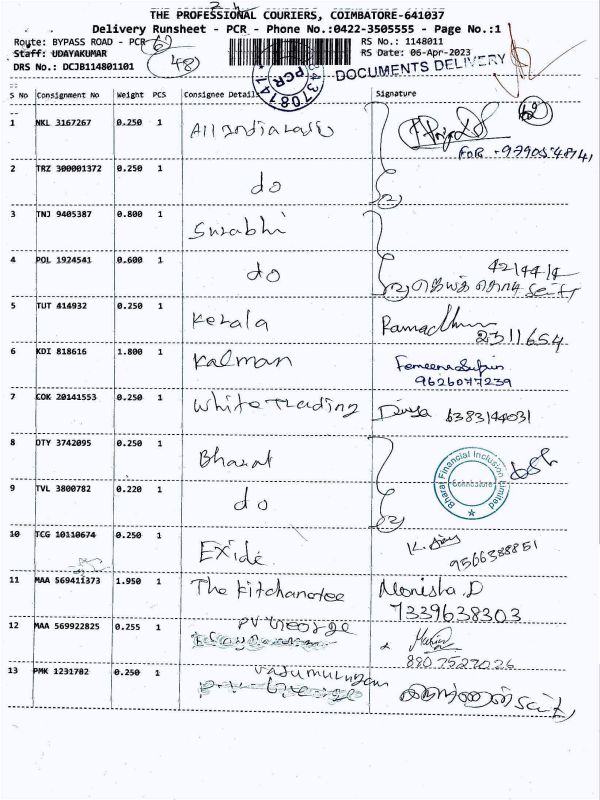 THE PROFESSIONAL COURIERS, COIMBATORE-641037
Delivery Runsheet - PCR - Phone No.:0422-3505555 - Page No.:1
Route: BYPASS ROAD - PCR 62
RS No.: 1148011
Staff: UDAYAKUMAR
RS Date: 06-Apr-2023
DRS No.: DCJB114801101
48
PCR
DOCUMENTS DELIVERY
S No Consignment No Weight PCS Consignee Details Signature
1 NKL 3167267 0.250 1
FOR
2 TRZ 300001372 0.250 1 do
3 TNJ 9405387 0.800 1 Surabhi
4 POL 1924541 0.600 1 do
5 TUT 414932 0.250 1 Kerala
2311654
6 KDI 818616 1.800 1 Kalman
9626077239
7 COK 20141553 0.250 1 White Trading Divya 6383144031
8 DTY 3742095 0.250 1 Bharat
Bharat Financial Inclusion Limited
Coimbatore
9 TVL 3800782 0.220 1 do
10 TCG 10110674 0.250 1 Exide
9566388851
11 MAA 569411373 1.950 1 The Kitchanotee Monisha.D
7339638303
12 MAA 569922825 0.255 1 PV George
8807527026
13 PMK 1231702 0.250 1